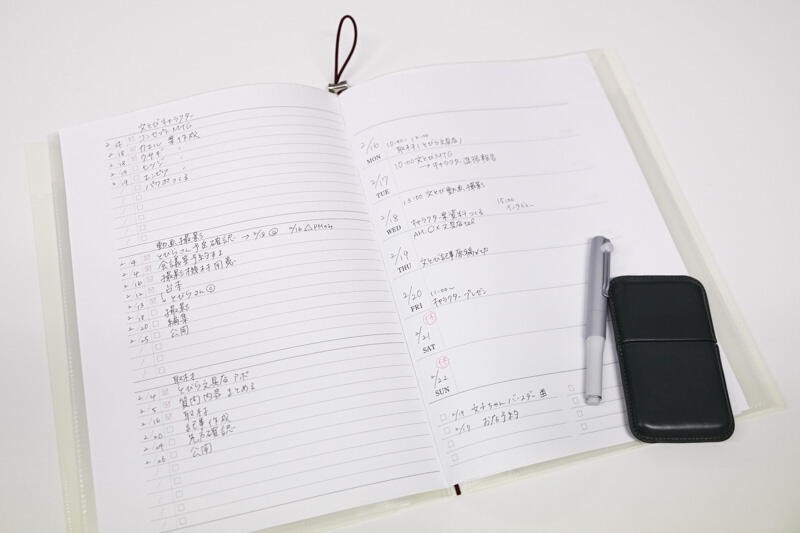 文とびキャラクター
2/4 コンセプトMTG
2/18 カエル 案作成
2/18 ウサギ 〃
2/19 ヒツジ 〃
2/19 エンピツ
パワポつくる
動画撮影
2/4 とびらさん予定確認 →
2/4 会議室予約する
2/10 撮影機材用意
2/12 台本
2/13 とびらさん
2/18 撮影
2/20 編集
2/25 公開
取材
2/4 とびら文具店 アポ
2/5 質問内容まとめる
2/16 取材
2/20 記事作成
2/24 先方確認
2/26 公開
2/16
MON
取材(とびら文具店)
10:00 文とびMTG
→キャラクター進捗報告
2/17
TUE
13:00 文とび動画撮影
2/18
WED
キャラクター案資料つくる
15:00
AM 〇×文具店
2/19
THU
文とび記事原稿〆切
2/20
FRI
11:00〜
キャラクタープレゼン
2/21
SAT
休
2/22
SUN
休
2/19 文子ちゃんバースデー
2/17 お店予約